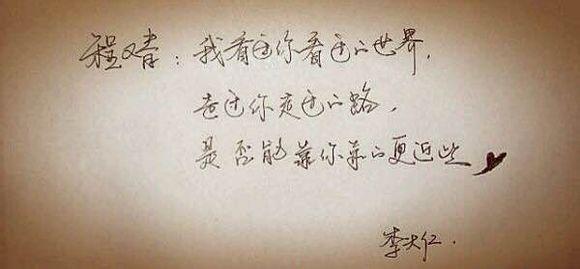 程又青：我看过你看过的世界，
走过你走过的路，
是否能靠你靠的更近些
李大仁.